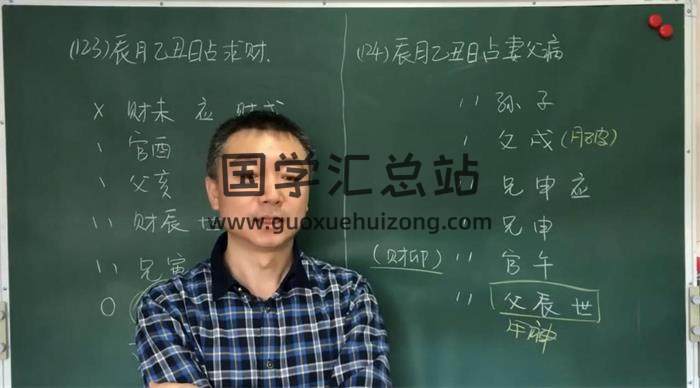 (123)辰月乙丑日占求财.
x 财未 应 财戌
、 官酉
、 父亥
、、 财辰 世
、、 兄寅
O
(124)辰月乙丑日占妻父病
、、 孙子
、 父戌(月破)
、、 兄申 应
、 兄申
(财卯) 、、 官午
、、 父辰 世
国学汇总站
www.guoxuehuizong.com